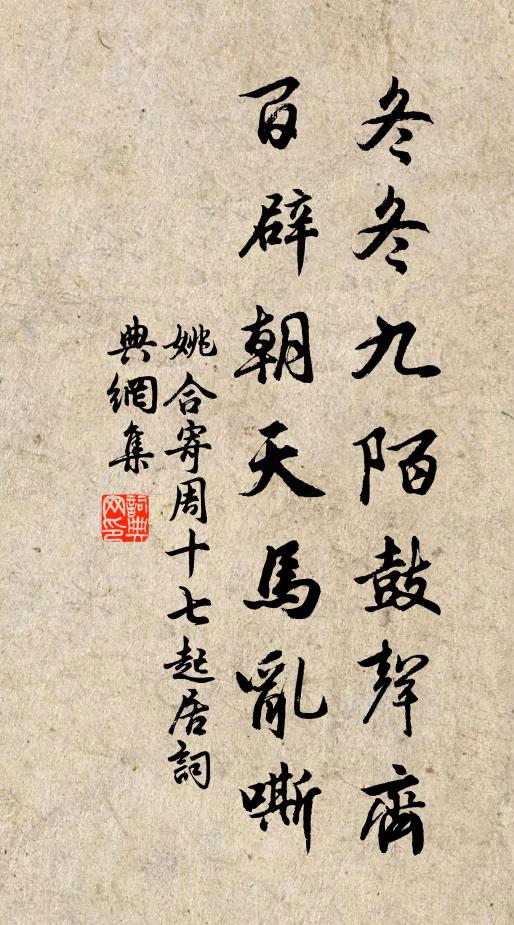 冬冬九陌鼓聲齊
百辟朝天馬亂嘶
姚合寄周十七起居詞
典網集
詞典
網印